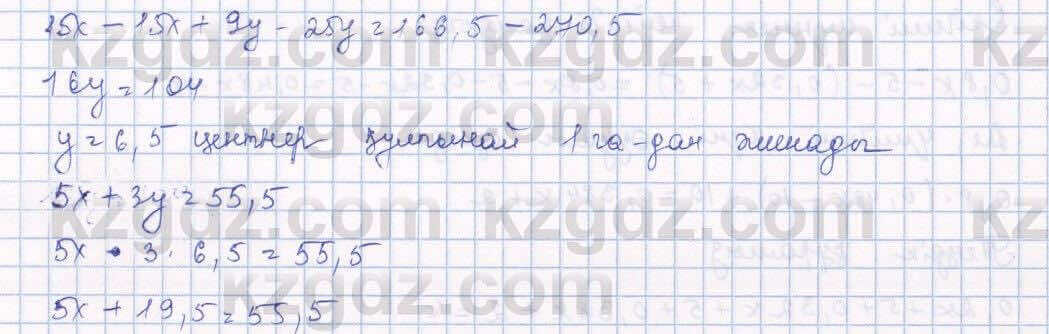 15x - 15x + 9y - 25y = 166,5 - 270,5
16y = 104
y = 6,5 центнер құлпынай 1 га-дан жинады
5x + 3y = 55,5
5x • 3 · 6,5 = 55,5
5x + 19,5 = 55,5
kzgdz.com kzgdz.com
kzgdz.com kzgdz.com
kzgdz.com